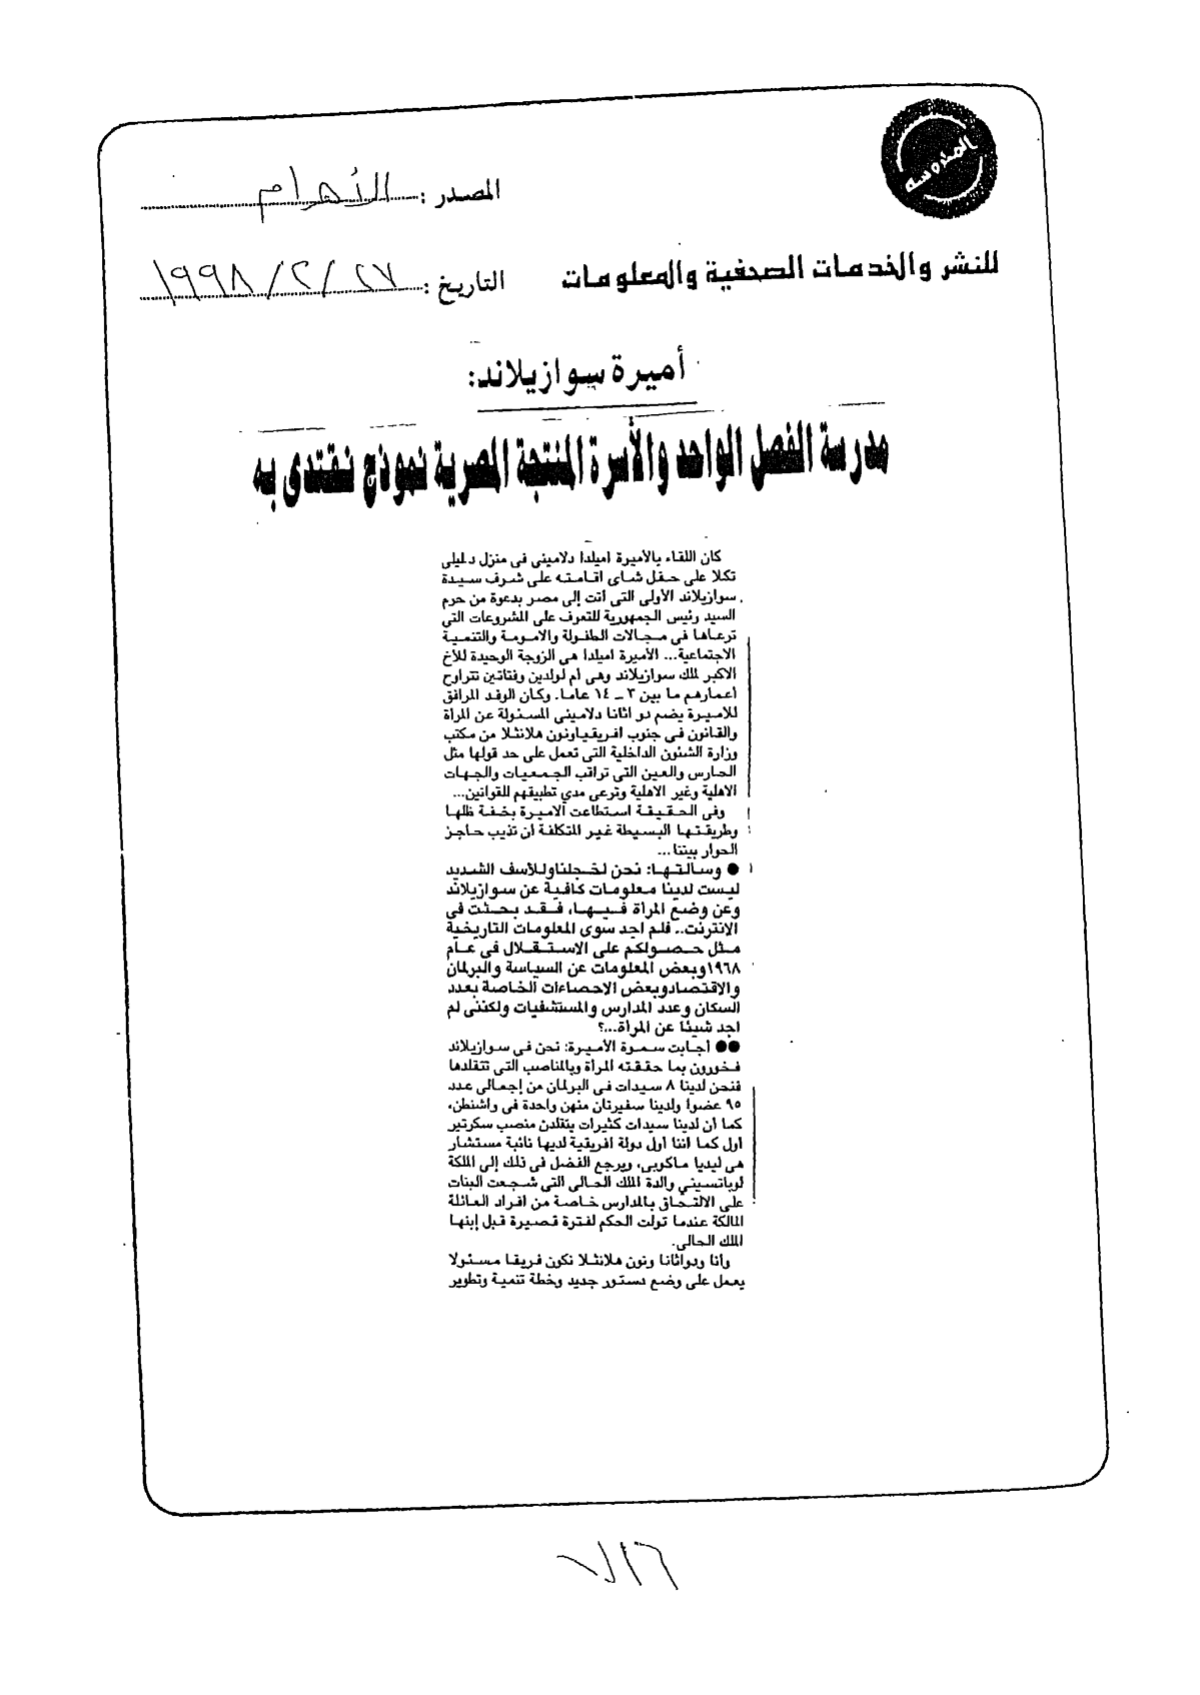 المحروسة
المصدر : الأهرام
للنشر والخدمات الصحفية والمعلومات
التاريخ : ٢٧/٢/١٩٩٨
أميرة سوازيلاند:
مدرسة الفصل الواحد والأسرة المنتجة المصرية نموذج نقتدى به
كان اللقاء بالأميرة اميلدا دلامينى فى منزل د.ليلى
تكلا على حفل شاى اقامته على شرف سيدة
سوازيلاند الأولى التى أتت إلى مصر بدعوة من حرم
السيد رئيس الجمهورية للتعرف على المشروعات التى
ترعاها فى مجالات الطفولة والامومة والتنمية
الاجتماعية... الأميرة اميلدا هى الزوجة الوحيدة للأخ
الاكبر لملك سوازيلاند وهى أم لولدين وفتاتين تتراوح
أعمارهم ما بين ٣ ــ ١٤ عاما. وكان الوفد المرافق
للاميرة يضم دو اثانا دلامينى المسئولة عن المرأة
والقانون فى جنوب افريقياونون هلانثلا من مكتب
وزارة الشئون الداخلية التى تعمل على حد قولها مثل
الحارس والعين التى تراقب الجمعيات والجهات
الاهلية وغير الاهلية وترعى مدي تطبيقهم للقوانين...
وفى الحقيقة استطاعت الاميرة بخفة ظلها
وطريقتها البسيطة غير المتكلفة ان تذيب حاجز
الحوار بيننا...
● وسألتها: نحن لخجلناوللأسف الشديد
ليست لدينا معلومات كافية عن سوازيلاند
وعن وضع المرأة فيها، فقد بحثت فى
الانترنت.. فلم اجد سوى المعلومات التاريخية
مثل حصولكم على الاستقلال فى عام
١٩٦٨وبعض المعلومات عن السياسة والبرلمان
والاقتصادوبعض الاحصاءات الخاصة بعدد
السكان وعدد المدارس والمستشفيات ولكننى لم
اجد شيئا عن المرأة...؟
●● أجابت سمرة الأميرة: نحن فى سوازيلاند
فخورون بما حققته المرأة وبالمناصب التى تتقلدها
فنحن لدينا ٨ سيدات فى البرلمان من إجمالى عدد
٩٥ عضوا ولدينا سفيرتان منهن واحدة فى واشنطن،
كما ان لدينا سيدات كثيرات يتقلدن منصب سكرتير
أول كما اننا أول دولة افريقية لديها نائبة مستشار
هى ليديا ماكوبى، ويرجع الفضل فى ذلك إلى الملكة
لوباتسيني والدة الملك الحالى التى شجعت البنات
على الالتحاق بالمدارس خاصة من افراد العائلة
المالكة عندما تولت الحكم لفترة قصيرة قبل إبنها
الملك الحالى.
وأنا ودواثانا ونون هلانثلا نكون فريقا مسئولا
يعمل على وضع دستور جديد وخطة تنمية وتطوير